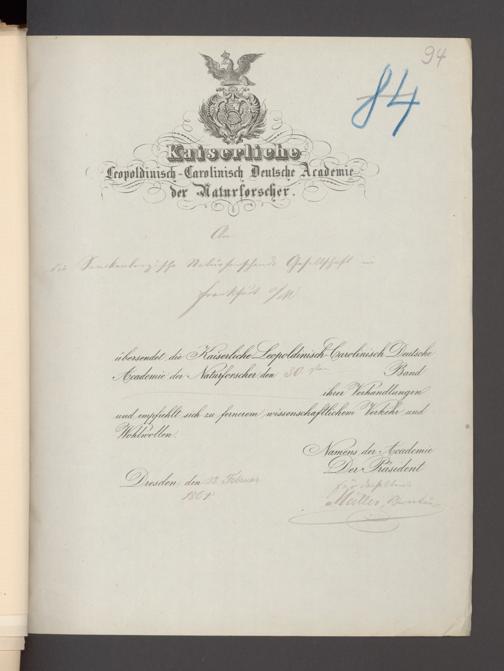 94
84
Kaiserliche
Leopoldinisch-Carolinisch Deutsche Academie
der Naturforscher.
An
die Senckenbergische Naturforschende Gesellschaft in
Frankfurt a/M.
übersendet die Kaiserliche Leopoldinisch-Carolinisch Deutsche
Academie der Naturforscher den 30 sten Band
ihrer Verhandlungen
und empfiehlt sich zu fernerem wissenschaftlichem Verkehr und
Wohlwollen.
Namens der Academie
Der Präsident
Dresden, den 13 Februar
Müller